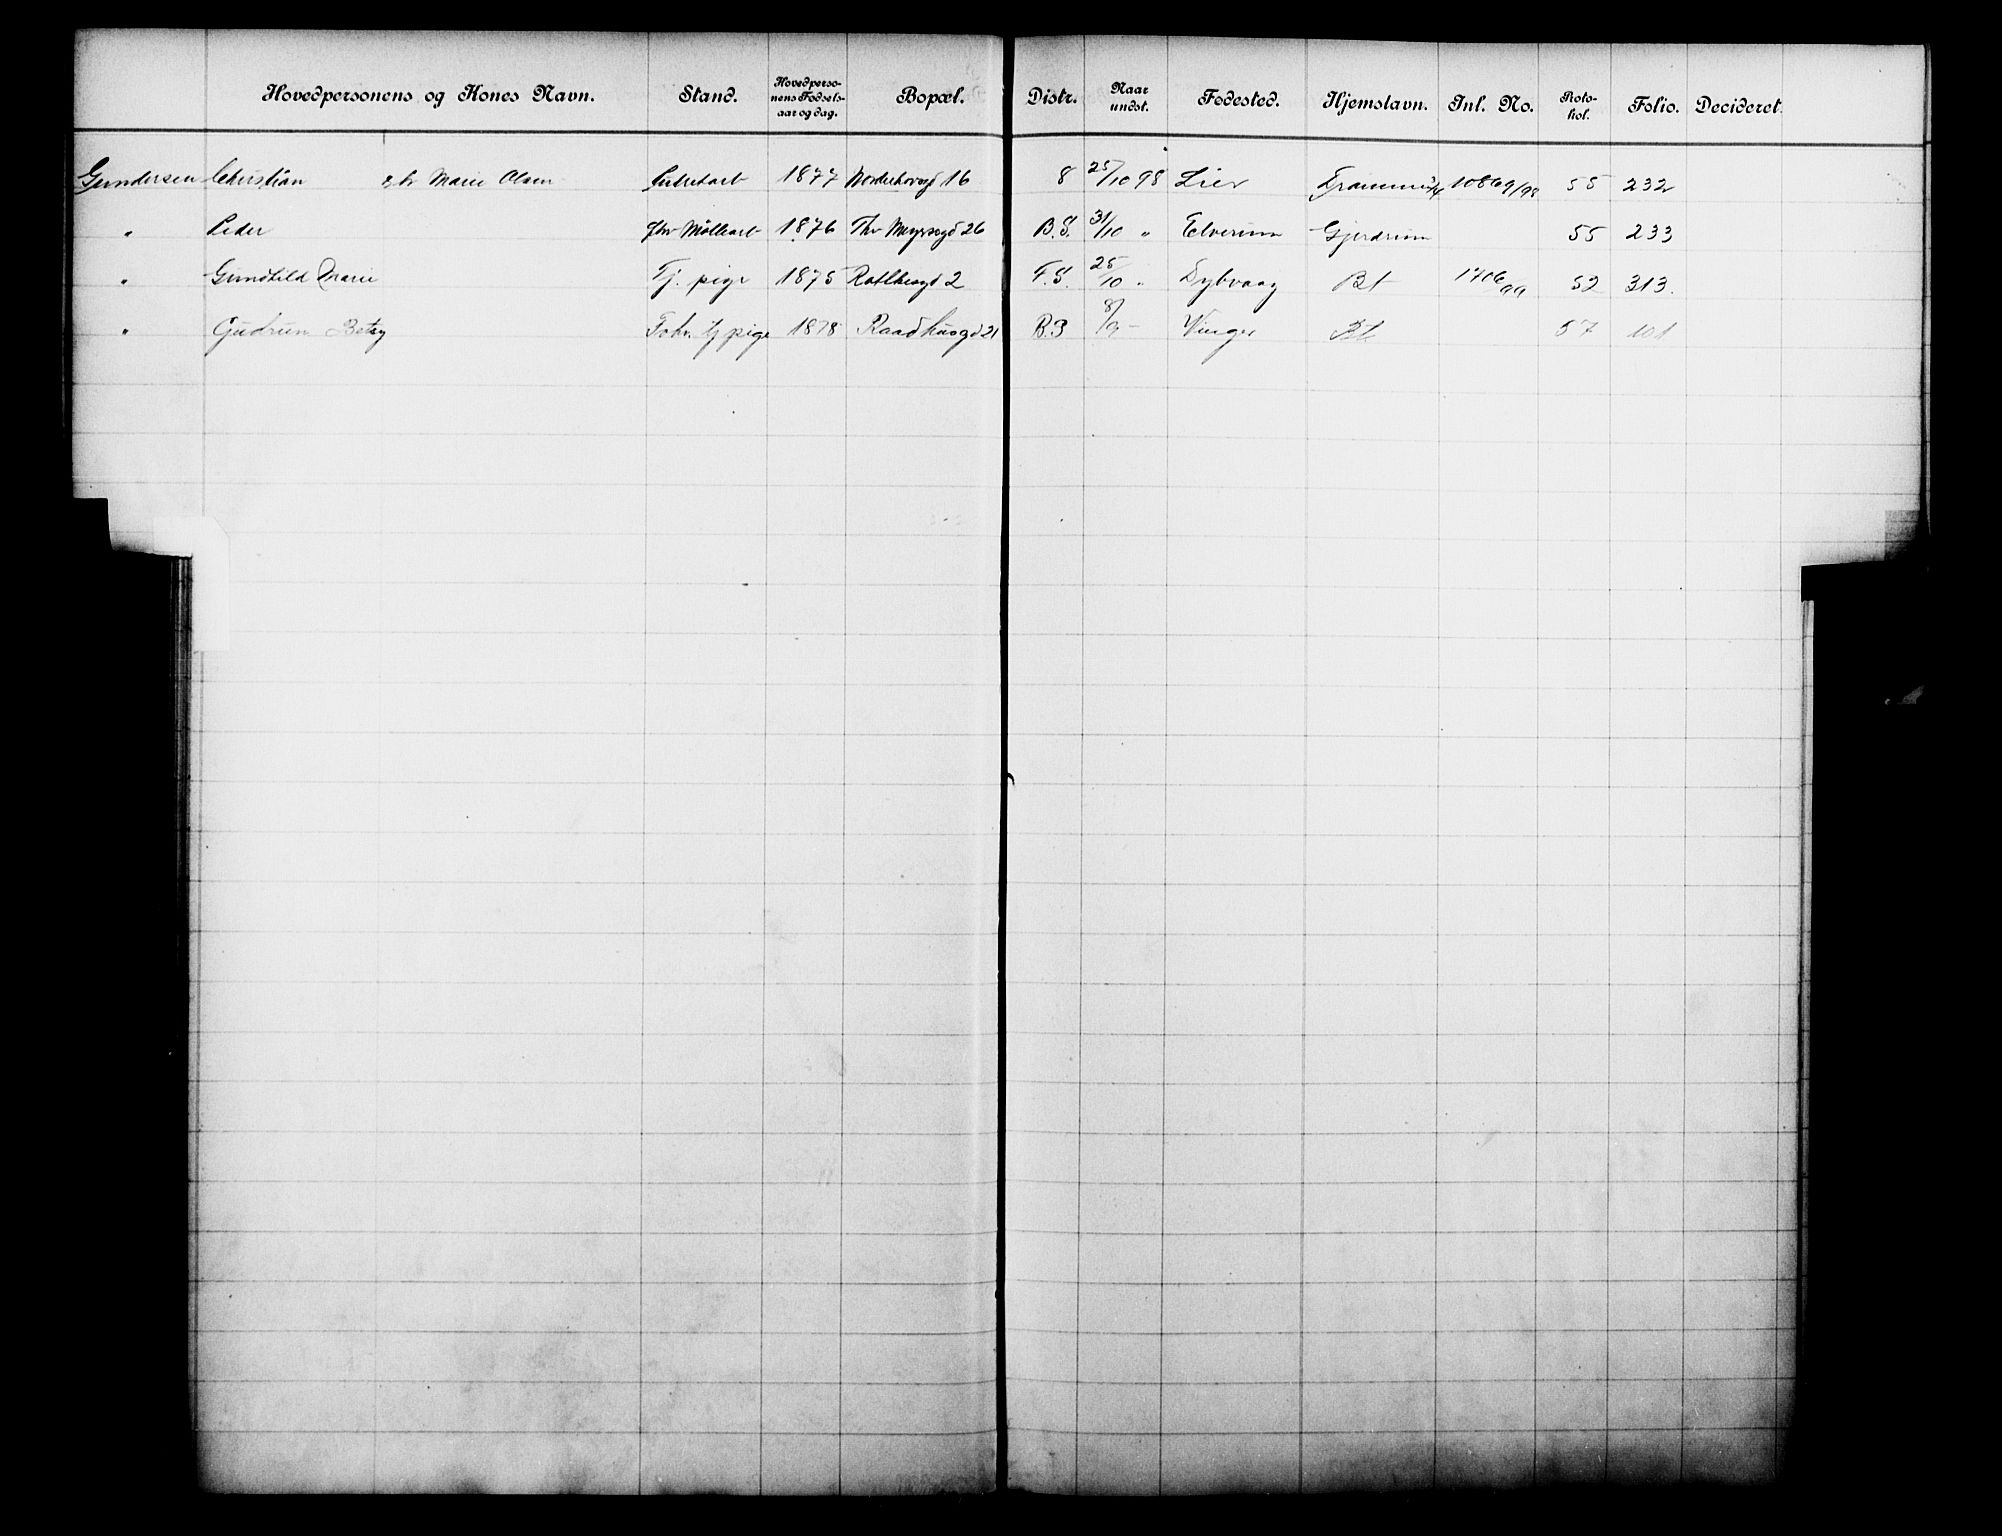 Hovedpersonens og Kones Navn. Stand. Hovedpersonens Fødselsaar og dag. Bopæl. Distr. Naar undst. Fødested. Hjemstavn. Inl. No. Protohol. Folio. Decideret.
Gundersen Christian Marie Olsen 1877 16 8 25/10 98 Lier 10869/98 55 232
" Peder 1876 Thv Meyersgd 26 B.S. 31/10 " Elverum Gjerdrum 55 233
" Gundhild Marie Tj. pige 1875 2 F.S. 25/10 " Dybvaag Bt 1706/99 52 313.
" Gudrun Betsy tj pige 1878 Raadhusgd 21 8/9 - Vinger Bt 57 101